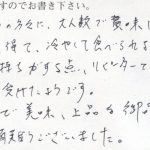 すのでお書き下さい。
の方々に、大人数で賞味し
得て、冷やして食べられる
持ちがする点、リピーターで
受けたようです。
で美味、上品な御品
有難うございました。